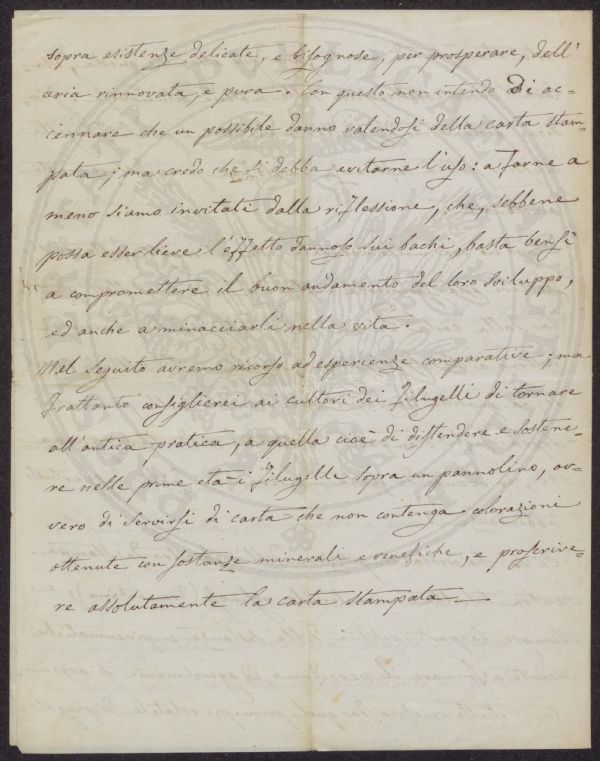 sopra esistenze delicate, e bisognose, per prosperare, dell'
aria rinnovata, e pura. Con questo non intendo di ac=
cennare che un possibile danno valendosi della carta stam=
pata; ma credo che si debba evitarne l'uso: a farne a
meno siamo invitati dalla riflessione, che, sebbene
possa esser lieve l'effetto dannoso sui bachi, basta bensì
a compromettere il buon andamento del loro sviluppo,
ed anche a minacciarli nella vita.
Nel seguito avremo ricorso ad esperienze comparative; ma
frattanto consiglierei ai cultori dei filugelli di tornare
all'antica pratica, a quella cioè di distendere e sostene=
re nelle prime età i filugelli sopra un pannolino, ov=
vero di servirsi di carta che non contenga colorazioni
ottenute con sostanze minerali e venefiche, e proscrive=
re assolutamente la carta stampata —